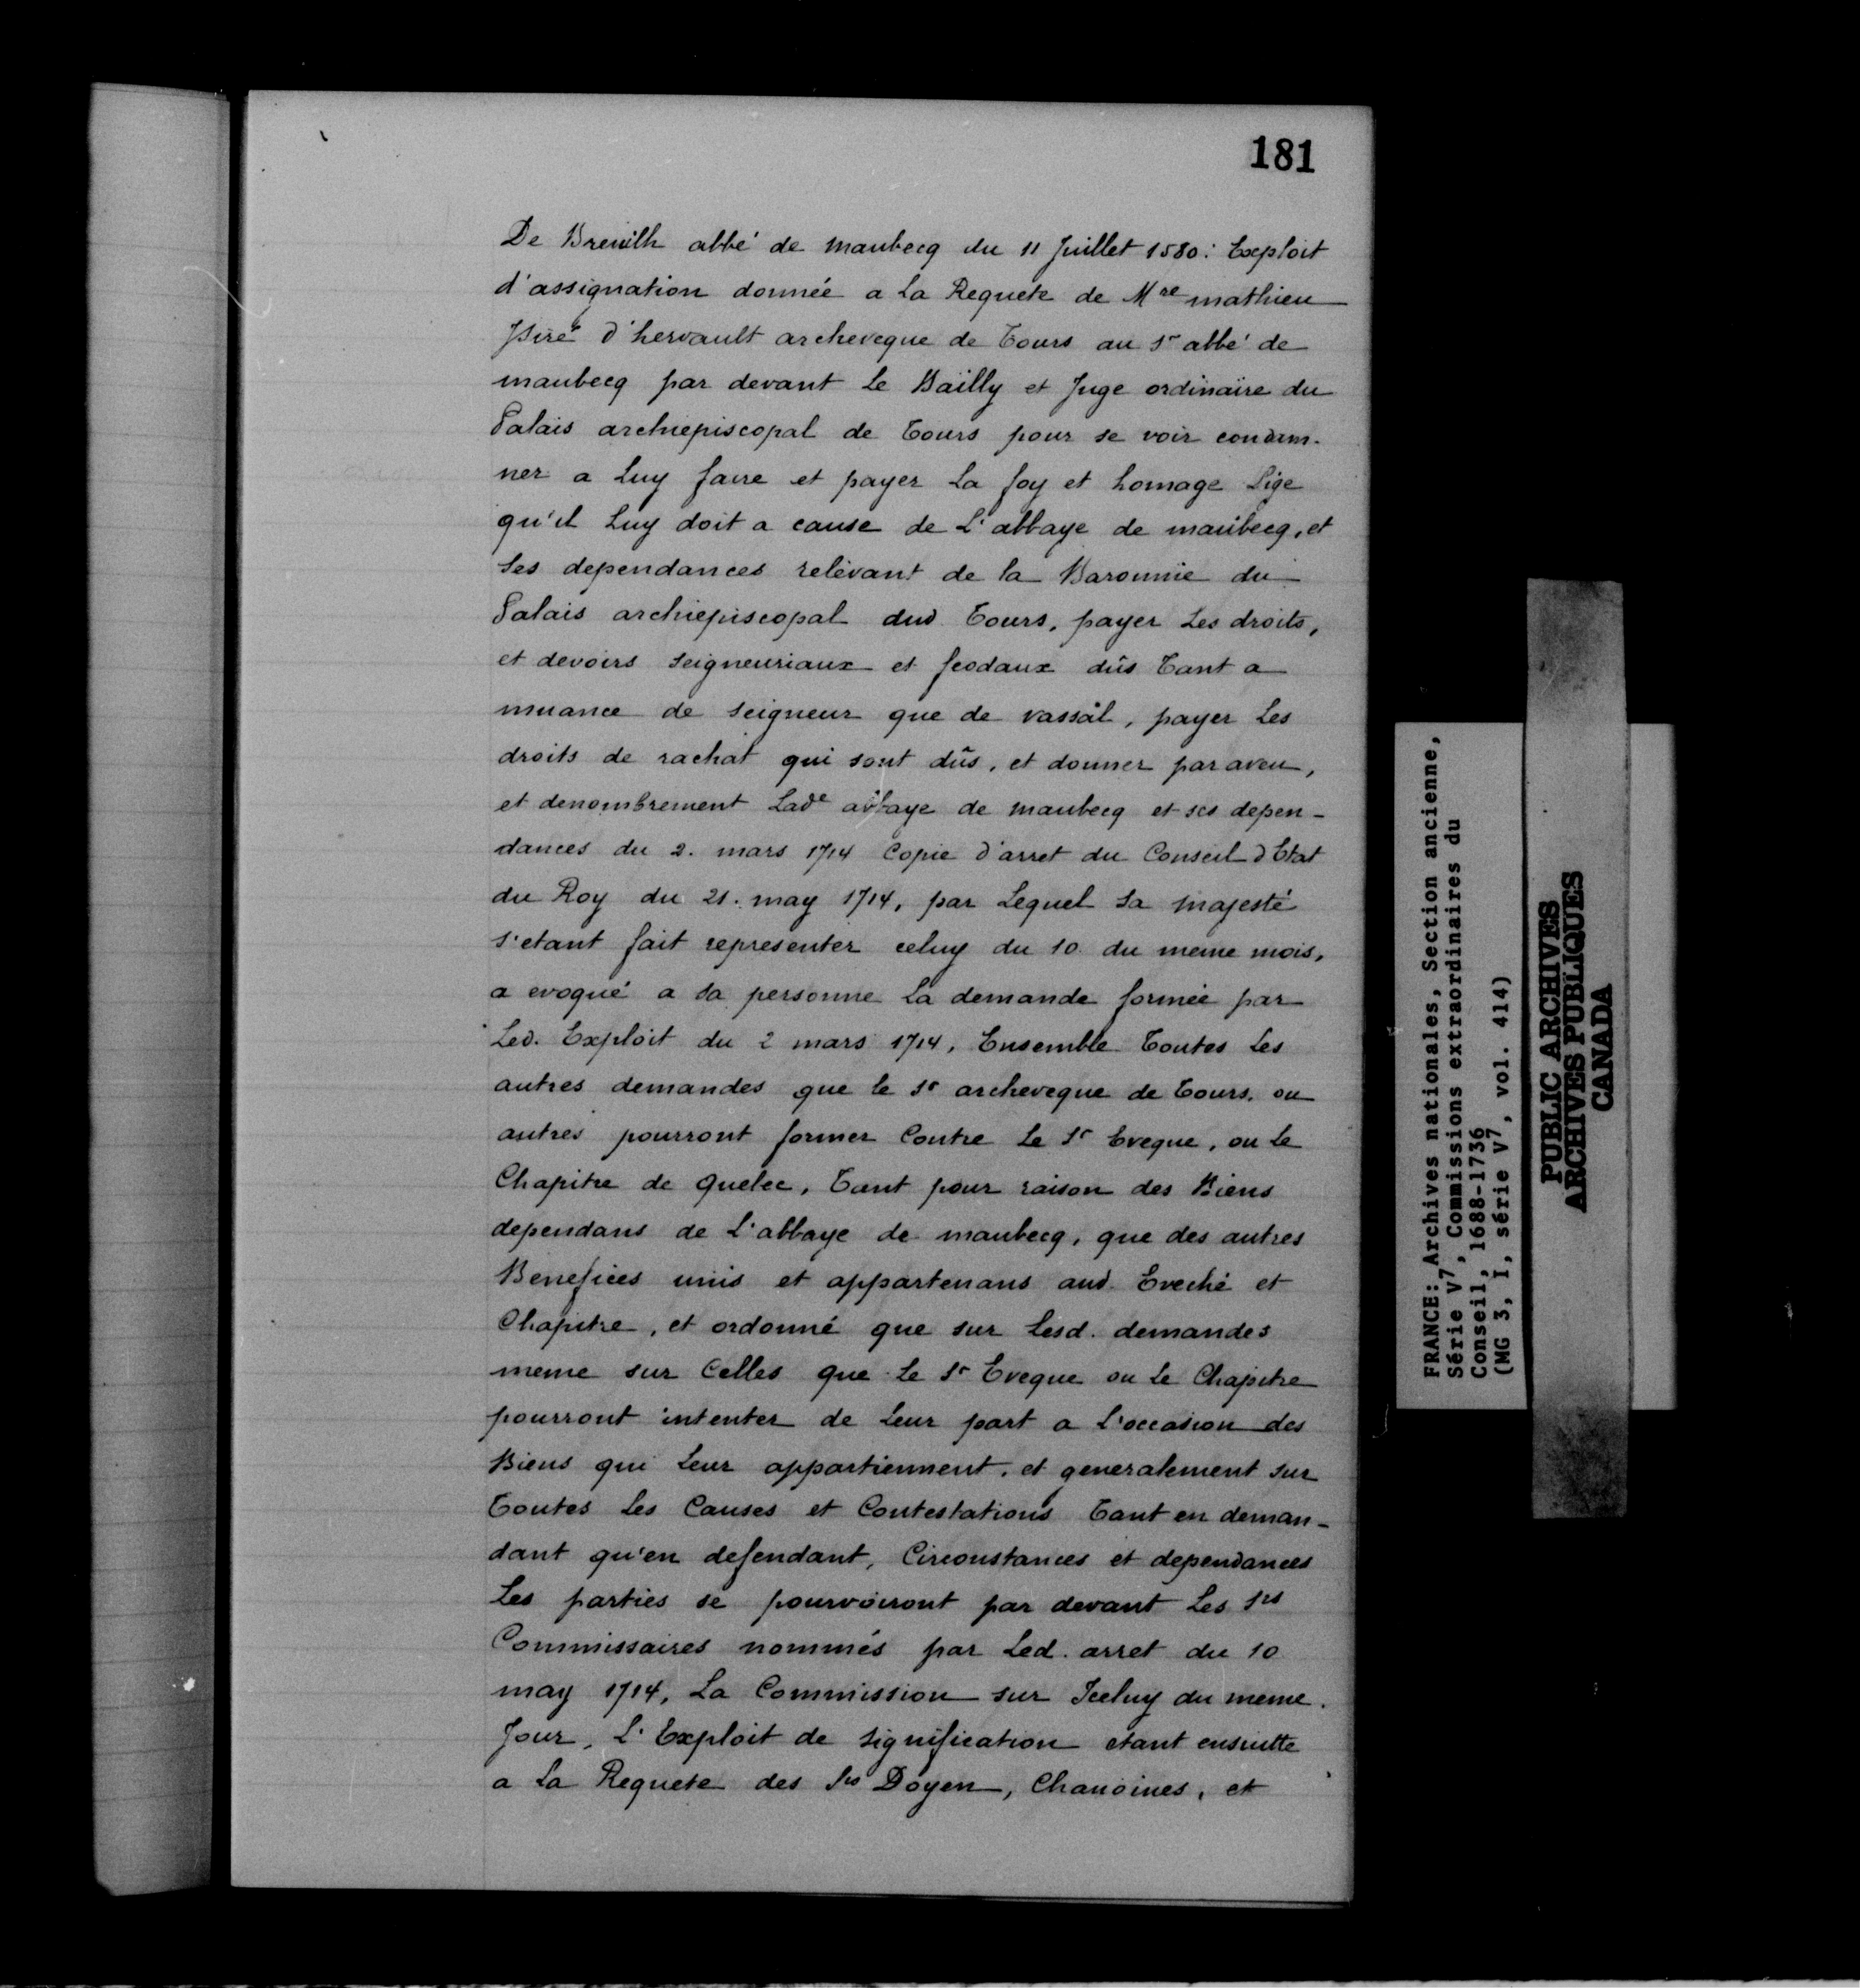 181
De Breuilh abbé de maubecq du 11 Juillet 1580: Exploit
d'assignation donnée a La Requete de Mre mathieu
Jsoré d'hervault archeveque de Tours au Sr abbé de
maubecq par devant Le Bailly et Juge ordinaire du
Palais archiepiscopal de Tours pour se voir condam-
ner a Luy faire et payer La foy et homage Lige
qu'il Luy doit a cause de L'abbaye de maubecq, et
ses dependances relevant de la Baronnie du
Palais archiepiscopal dud Tours, payer Les droits,
et devoirs seigneuriaux et feodaux dûs Tant a
muance de seigneur que de vassal, payer Les
droits de rachat qui sont dûs, et donner par aveu,
et denombrement Lade abbaye de maubecq et ses depen-
dances du 2. mars 1714 Copie d'arret du Conseil d'Etat
du Roy du 21. may 1714, par Lequel sa majesté
s'etant fait representer celuy du 10 du meme mois,
a evoqué a sa personne La demande formée par
Led. Exploit du 2 mars 1714, Ensemble Toutes Les
autres demandes que le Sr archeveque de Tours, ou
autres pourront former Contre Le Sr Eveque, ou Le
Chapitre de Quebec, Tant pour raison des Biens
dependans de L'abbaye de maubecq, que des autres
Benefices unis et appartenans aud Eveché et
Chapitre, et ordonné que sur Lesd. demandes
meme sur Celles que Le Sr Eveque ou Le Chapitre
pourront intenter de Leur part a L'occasion des
Biens qui Leur appartiennent, et generalement sur
Toutes Les Causes et Contestations Tant en deman-
dant qu'en defendant, Circonstances et dependances
Les parties se pourvoiront par devant Les Srs
Commissaires nommés par Led. arret du 10
may 1714, La Commission sur Iceluy du meme
Jour, L'Exploit de signification etant ensuitte
a La Requete des Srs Doyen, Chanoines, et
FRANCE: Archives nationales, Section ancienne,
Série V7, Commissions extraordinaires du
Conseil, 1688-1736
(MG 3, I, série V7, vol. 414)
PUBLIC ARCHIVES
ARCHIVES PUBLIQUES
CANADA